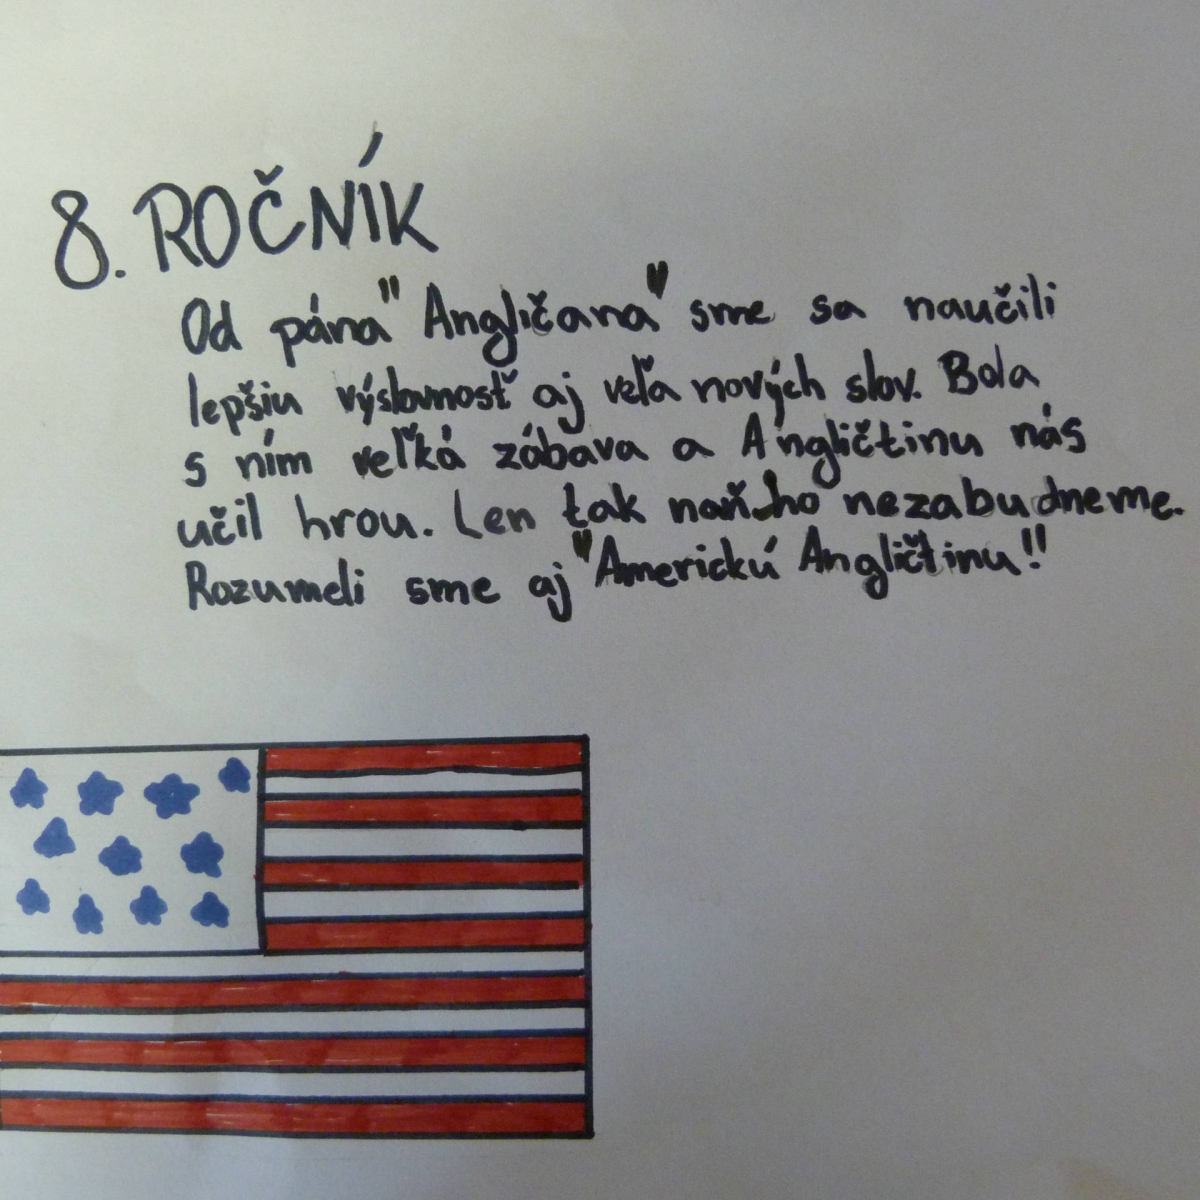 8. ROČNÍK
Od pána "Angličana" sme sa naučili
lepšiu výslovnosť aj veľa nových slov. Bola
s ním veľká zábava a Angličtinu nás
učil hrou. Len tak naňho nezabudneme.
Rozumeli sme aj "Americkú Angličtinu!!